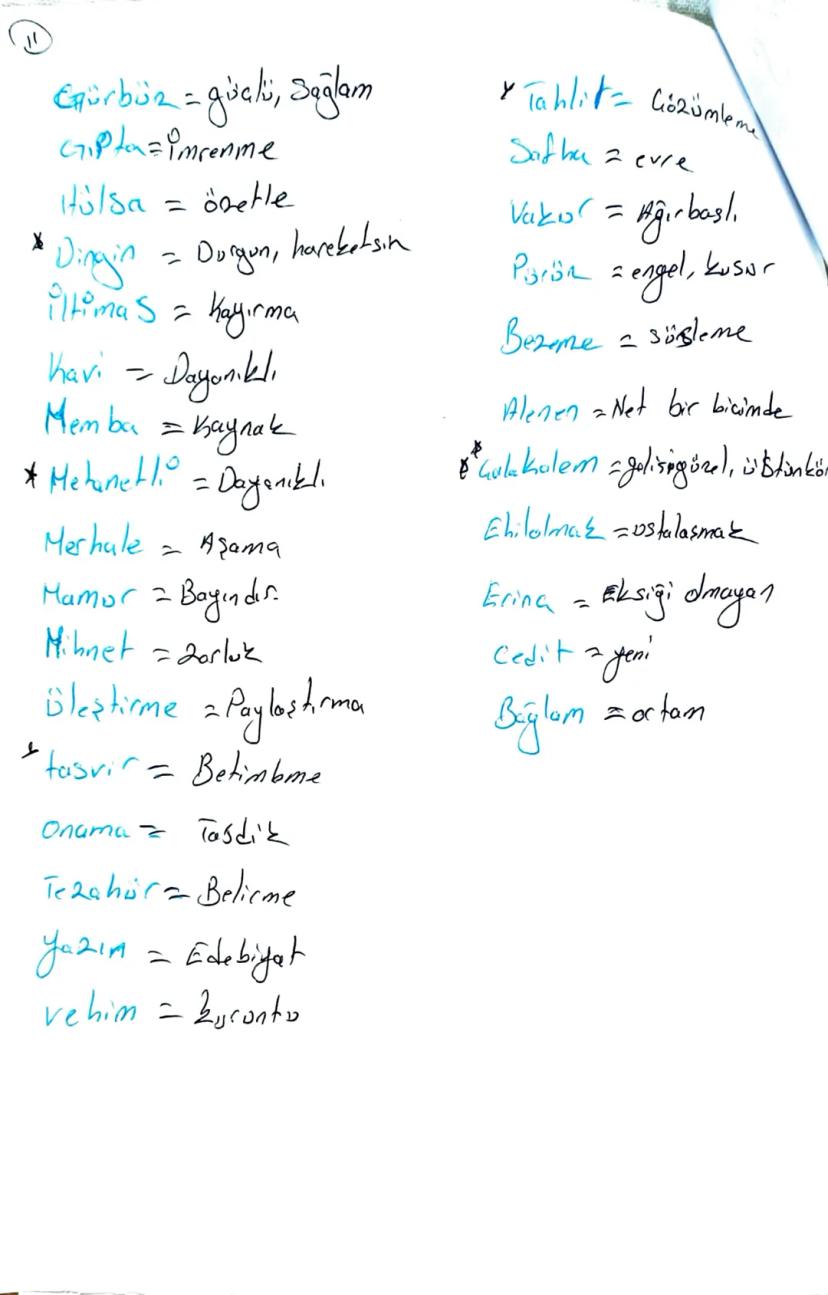 11
Gürbüz = güçlü, Sağlam
Gıpta = İmrenme
Hülsa = özetle
* Dingin = Durgun, hareketsin
İltimas = Kayırma
Kavi = Dayanıklı
Memba = Kaynak
* Metanetli = Dayanıklı
Merhale = Aşama
Mamur = Bayındır
Mihnet = zorluk
Üleştirme = Paylaştırma
* tasvir = Betimleme
Onama = Tasdik
Tezahür = Belirme
Yazın = Edebiyat
vehim = kuruntu
* Tahlit = Çözümleme
Safha = evre
Vakur = Ağırbaşlı
Pürüz = engel, kusur
Bezeme = süsleme
Alenen = Net bir biçimde
* Çalakalem = gelişigüzel, üstünkör
Ehilolmak = ustalaşmak
Erinç = Eksiği olmayan
Cedit = yeni
Bağlam = ortam